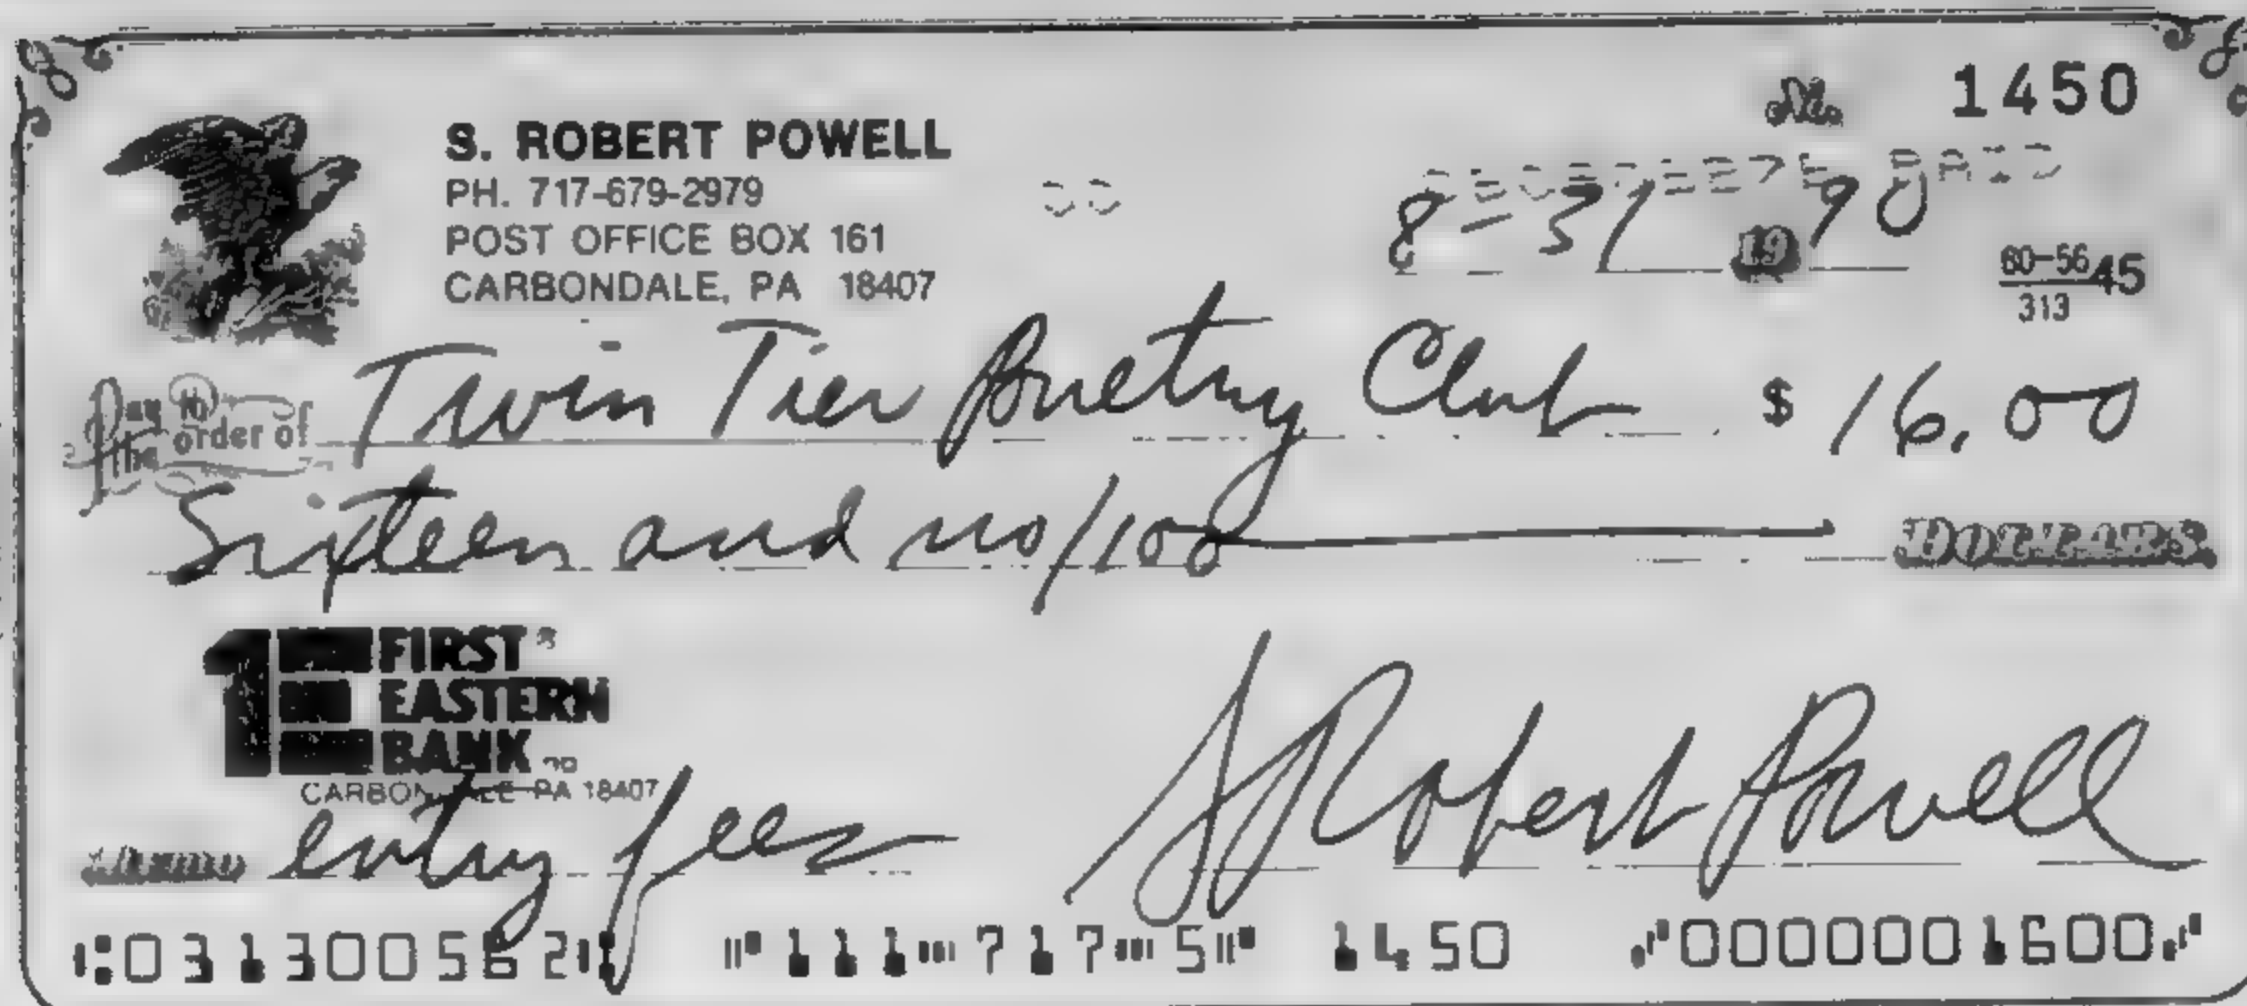 No. 1450
S. ROBERT POWELL
PH. 717-679-2979
POST OFFICE BOX 161
CARBONDALE, PA 18407
PAID
8-31 1990
60-56 45
313
Pay to the order of Twin Tier Poetry Club $ 16.00
Sixteen and no/100 DOLLARS
1 FIRST
EASTERN
BANK
CARBONDALE PA 18407
Memo entry fees S Robert Powell
⑆031300562⑆ ⑈111⑉717⑉5⑈ 1450 ⑈0000001600⑈